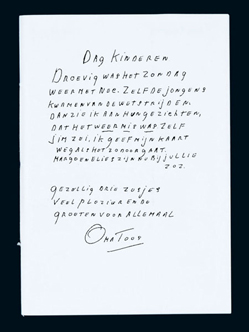 DAG KINDEREN
DROEVIG WAS HET ZONDAG
WEER MET NEC. ZELF DE JONGENS
KWAMEN VAN DE WETSTRIJDEN.
DAN ZIE IK AAN HUN GEZICHTEN,
DAT HET WEER MIS WAS ZELF
JIM ZEI, IK GEEF MIJN KAART
WEG ALS HET ZO DOOR GAAT.
EN ELIES ZIJN NU BIJ JULLIE
GEZELLIG DRIE ZUSJES
VEEL PLEZIER EN DE
GROETEN VOOR ALLEMAAL
OMA TOOS